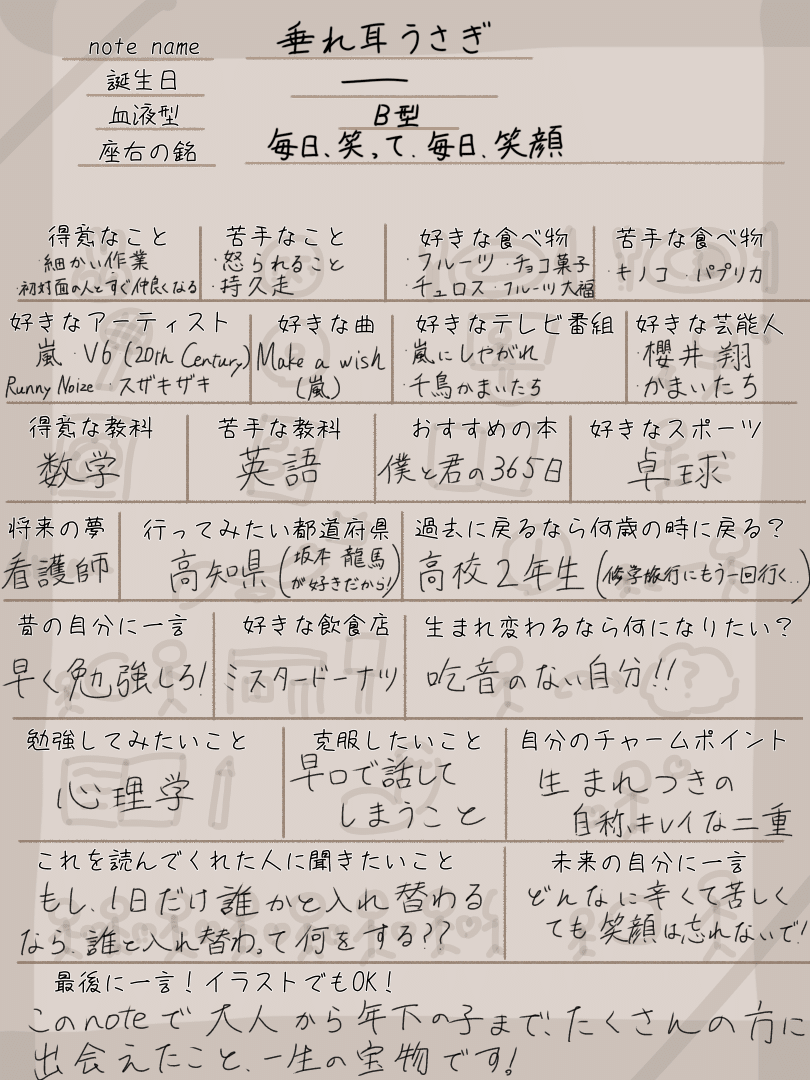 note name 垂れ耳うさぎ
誕生日 ―
血液型 B型
座右の銘 毎日、笑って、毎日、笑顔
得意なこと 苦手なこと 好きな食べ物 苦手な食べ物
・細かい作業 ・怒られること ・フルーツ ・チョコ菓子 ・キノコ ・パプリカ
・初対面の人とすぐ仲良くなる ・持久走 ・チュロス ・フルーツ大福
好きなアーティスト 好きな曲 好きなテレビ番組 好きな芸能人
嵐 ・V6 (20th Century) Make a wish ・嵐にしやがれ ・櫻井 翔
Runny Noize ・スザキザキ (嵐) ・千鳥かまいたち ・かまいたち
得意な教科 苦手な教科 おすすめの本 好きなスポーツ
数学 英語 僕と君の365日 卓球
将来の夢 行ってみたい都道府県 過去に戻るなら何歳の時に戻る?
看護師 高知県 (坂本 龍馬が好きだから!) 高校2年生 (修学旅行にもう一回行く..)
昔の自分に一言 好きな飲食店 生まれ変わるなら何になりたい?
早く勉強しろ! ミスタードーナツ 吃音のない自分!!
勉強してみたいこと 克服したいこと 自分のチャームポイント
心理学 早口で話して 生まれつきの
しまうこと 自称、キレイな二重
これを読んでくれた人に聞きたいこと 未来の自分に一言
もし、1日だけ誰かと入れ替わる どんなに辛くて苦しく
なら、誰と入れ替わって何をする?? ても笑顔は忘れないで!
最後に一言!イラストでもOK!
このnoteで大人から年下の子まで、たくさんの方に
出会えたこと、一生の宝物です!